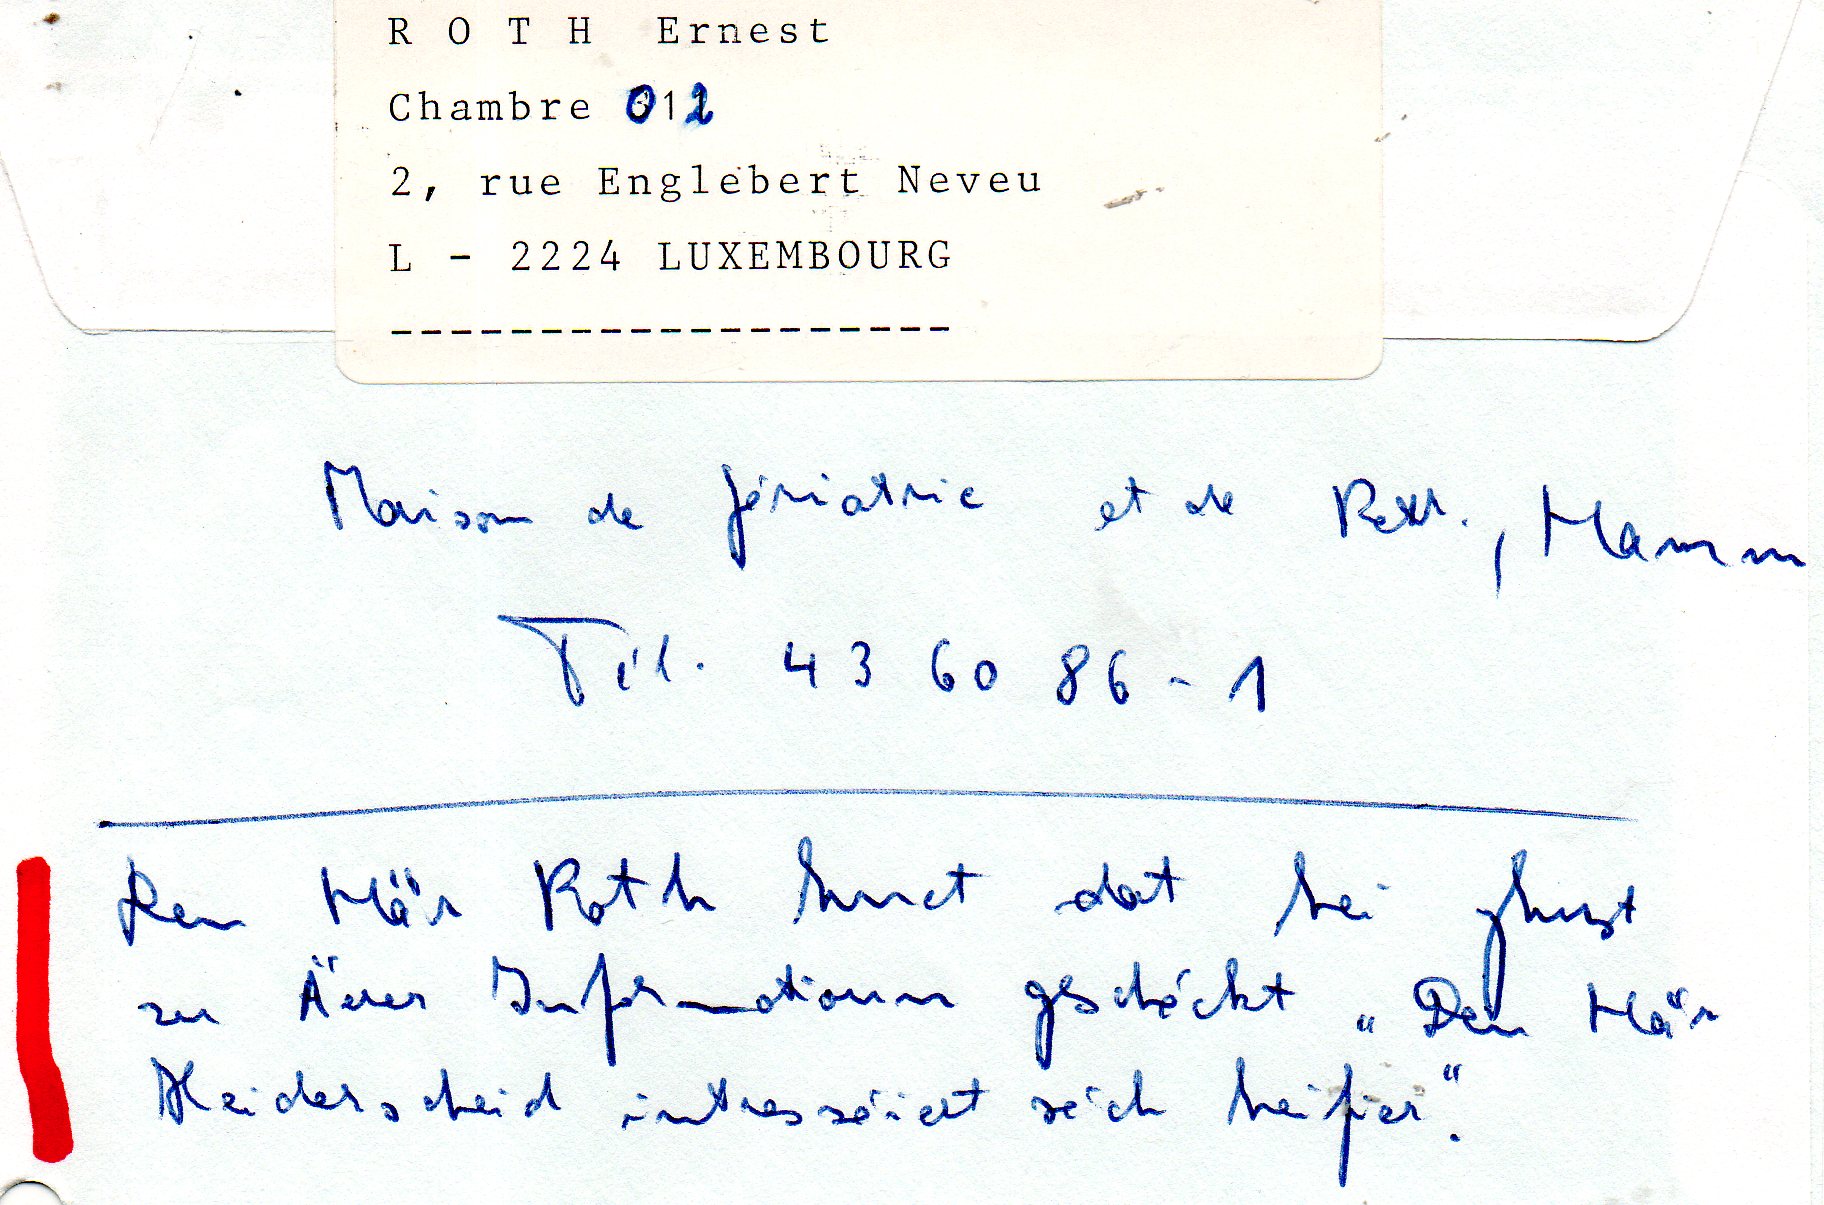 R O T H Ernest
Chambre 012
2, rue Englebert Neveu
L - 2224 LUXEMBOURG
-------------------
Maison de gériatrie et de Retr., Hamm
Tél. 43 60 86 - 1
Den Här Roth huet dat hei
zu Ärer Informatioun geschéckt „Den Här
Heiderscheid intresséiert séch heifier“.